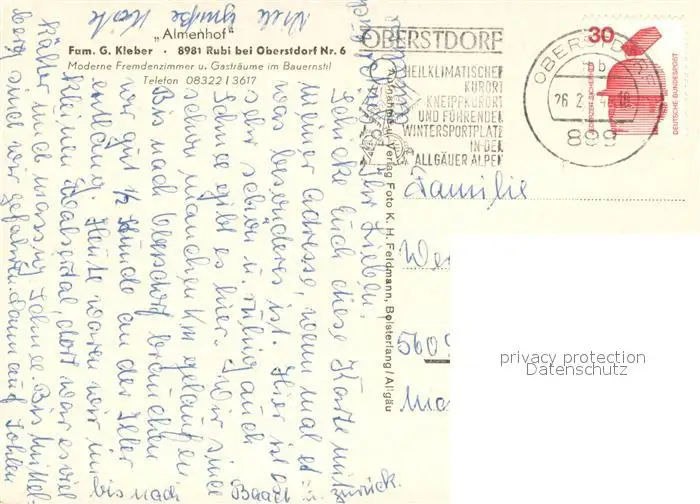 „Almenhof"
Fam. G. Kleber · 8981 Rubi bei Oberstdorf Nr. 6
Moderne Fremdenzimmer u. Gasträume im Bauernstil
Telefon 08322 / 3617
OBERSTDORF
HEILKLIMATISCHER
KURORT
KNEIPPKURORT
UND FÜHRENDER
WINTERSPORTPLATZ
IN DEN
ALLGÄUER ALPEN
OBERSTDORF
26.2.
899
30
DEUTSCHE BUNDESPOST
Aufnahme u. Verlag Foto K. H. Feldmann, Bolsterlang / Allgäu
Familie
We
560
privacy protection
Datenschutz
Ihr Lieben,
Schicke Euch diese Karte mit
meiner Adresse, wenn mal et
was besonderes ist. Hier ist es
sehr schön u. ruhig, auch
Schnee gibt es hier. Wir sind
schon manchen Km gelaufen
Bis nach Obersdorf brauchen
wir gut ½ Stunde an der Iller
entlang. Heute waren wir im
kleinen Walsertal, dort war es viel
kälter und massig Schnee. Bis Mittel-
berg sind wir gefahren, dann auf Sohlen
bis nach Baad u. zurück.
Viele Grüße